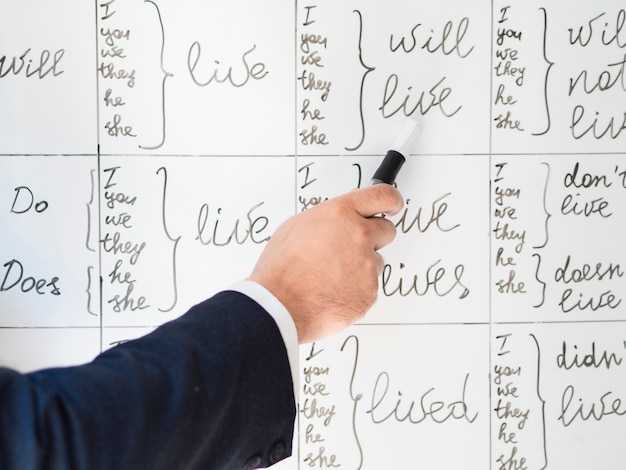 Will
I
you
we
they
he
she
live
I
you
we
they
he
she
will
live
I
you
we
they
he
she
will
not
live
Do
Does
I
you
we
they
he
she
live
I
you
live
lives
I
you
we
they
he
she
don't
live
doesn
live
I
you
we
they
he
she
lived
I
you
we
they
he
she
didn't
live